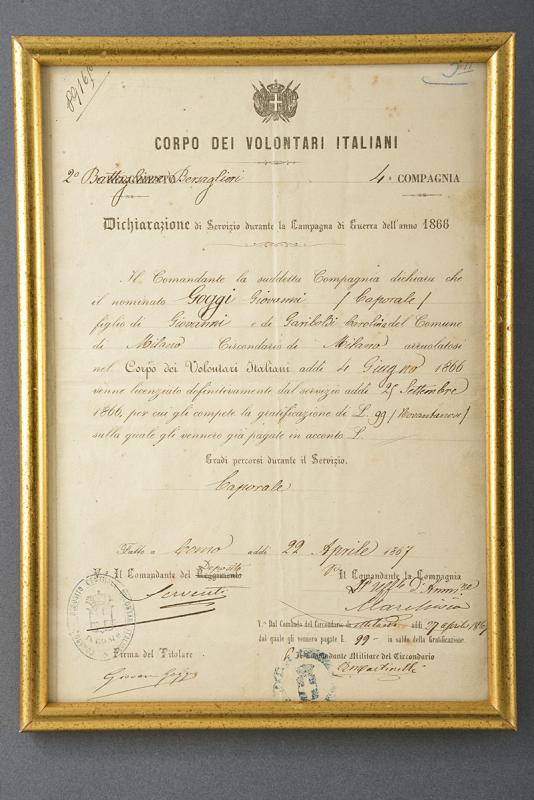 CORPO DEI VOLONTARI ITALIANI
2º Battaglione Bersaglieri 4ª COMPAGNIA
Dichiarazione di Servizio durante la Campagna di Guerra dell'anno 1866
Il Comandante la suddetta Compagnia dichiara che
il nominato Goggi Giovanni / Caporale /
figlio di Giovanni e di Gariboldi Carolina del Comune
di Milano Circondario di Milano arruolatosi
nel Corpo dei Volontari Italiani addì 4 Giugno 1866
venne licenziato definitivamente dal servizio addì 25 Settembre
1866, per cui gli compete la gratificazione di L. 99 / Novantanove /
sulla quale gli vennero già pagate in acconto L.
Gradi percorsi durante il Servizio.
Caporale
Fatto a Como addì 22 Aprile 1867
V.º Il Comandante del Reggimento Deposito
Il Comandante la Compagnia
Serventi
V.º Dal Comando del Circondario di Milano addì 27 aprile 1867
dal quale gli vennero pagate L. 99 - in saldo della Gratificazione.
Firma del Titolare
Il Comandante Militare del Circondario
Giovanni Goggi
Martinelli